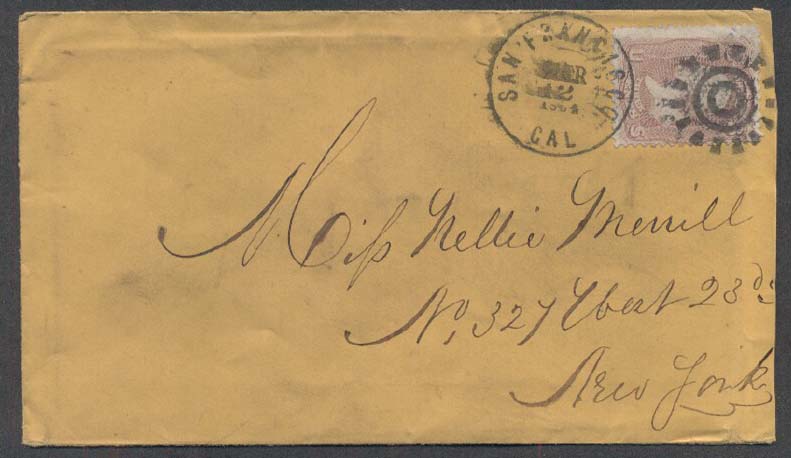 SAN FRANCISCO
MAR
12
1864
CAL
Miss Nellie Merrill
No, 327 West 23d St
New York